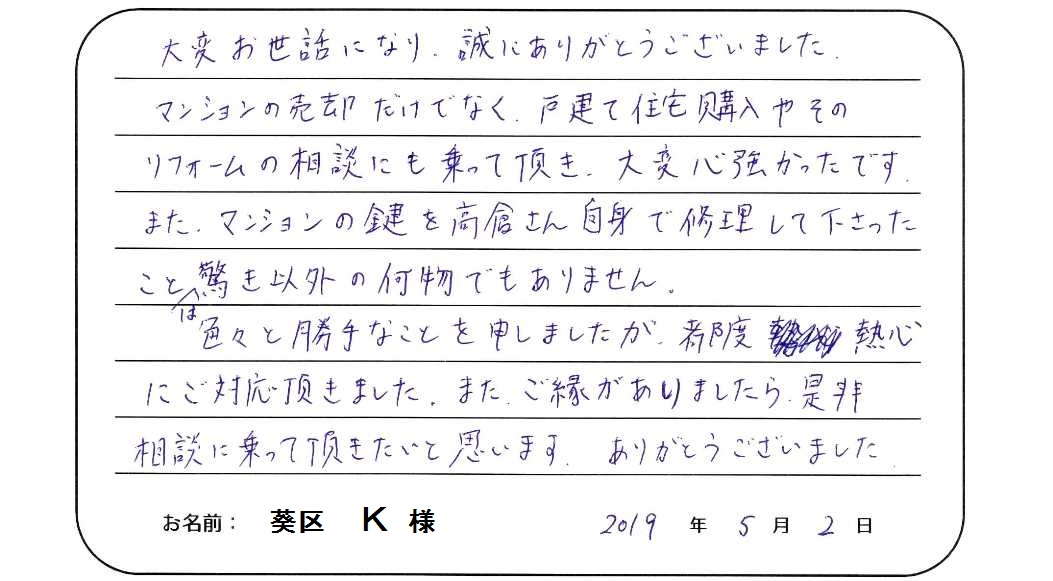 大変お世話になり、誠にありがとうございました。
マンションの売却だけでなく、戸建て住宅購入やその
リフォームの相談にも乗って頂き、大変心強かったです。
また、マンションの鍵を高倉さん自身で修理して下さった
ことは驚き以外の何物でもありません。
色々と勝手なことを申しましたが、都度 熱心
にご対応頂きました。また、ご縁がありましたら、是非
相談に乗って頂きたいと思います。ありがとうございました。
お名前： 葵区 K 様 2019 年 5 月 2 日